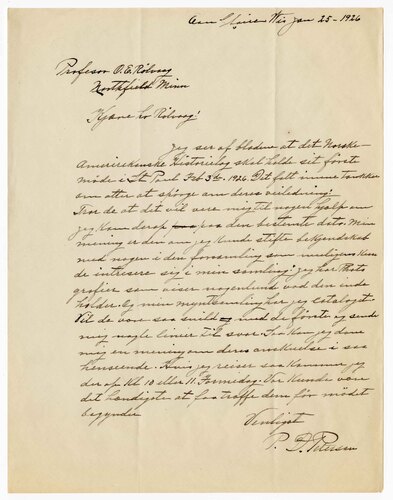 Eau Claire Wis Jan 25 - 1926
Profesor O. E. Rölvaag
Northfield Minn
Kjære Hr Rölvaag!
Jeg ser af bladene at det Norske-
Amerikanske Historielag skal holde sit förste
möde i St Paul Feb 3de 1926. Det falt i mine Tanker
om atter at spörge om deres veiledning.
Tror de at det vil være mig til nogen hjælp om
jeg kom derop paa den bestemte dato. Min
mening er den om jeg kunde stifte bekjendskab
med nogen i den forsamling som muligens kun
de intresere sig i min samling. Jeg har Photo
grafier som viser nogenlunde vad den inde
holder. Og min myntsamling har jeg catalogat
Vil de være saa snild ved de förste og sende
mig nogle linier til svar. Saa kan jeg dane
mig en mening om deres anskuelse i saa
henseende. Hvis jeg reiser saa kommer jeg
der op Kl 10 eller 11 Formidag. Vor kunde være
det Landigste at faa træffe dem för mödet
begynder
Venligst
P. D. Petersen